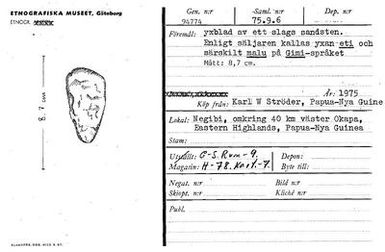 ETNOGRAFISKA MUSEET, Göteborg
ETNOGR.
8,7 cm
Gen. nr
94774
Saml. nr
75.9.6
Dep. nr
Föremål: yxblad av ett slags sandsten.
Enligt säljaren kallas yxan eti och
särskilt malu på Gimi-språket
Mått: 8,7 cm.
År: 1975
Köp från: Karl W Ströder, Papua-Nya Guine
Lokal: Negibi, omkring 40 km väster Okapa,
Eastern Highlands, Papua-Nya Guinea
Stam:
Utställt: G-S. Rum-9.
Depon:
Magasin: H-78.
Byte till:
Negat. nr
Bild nr
Skiopt. nr
Kliché nr
Publ.